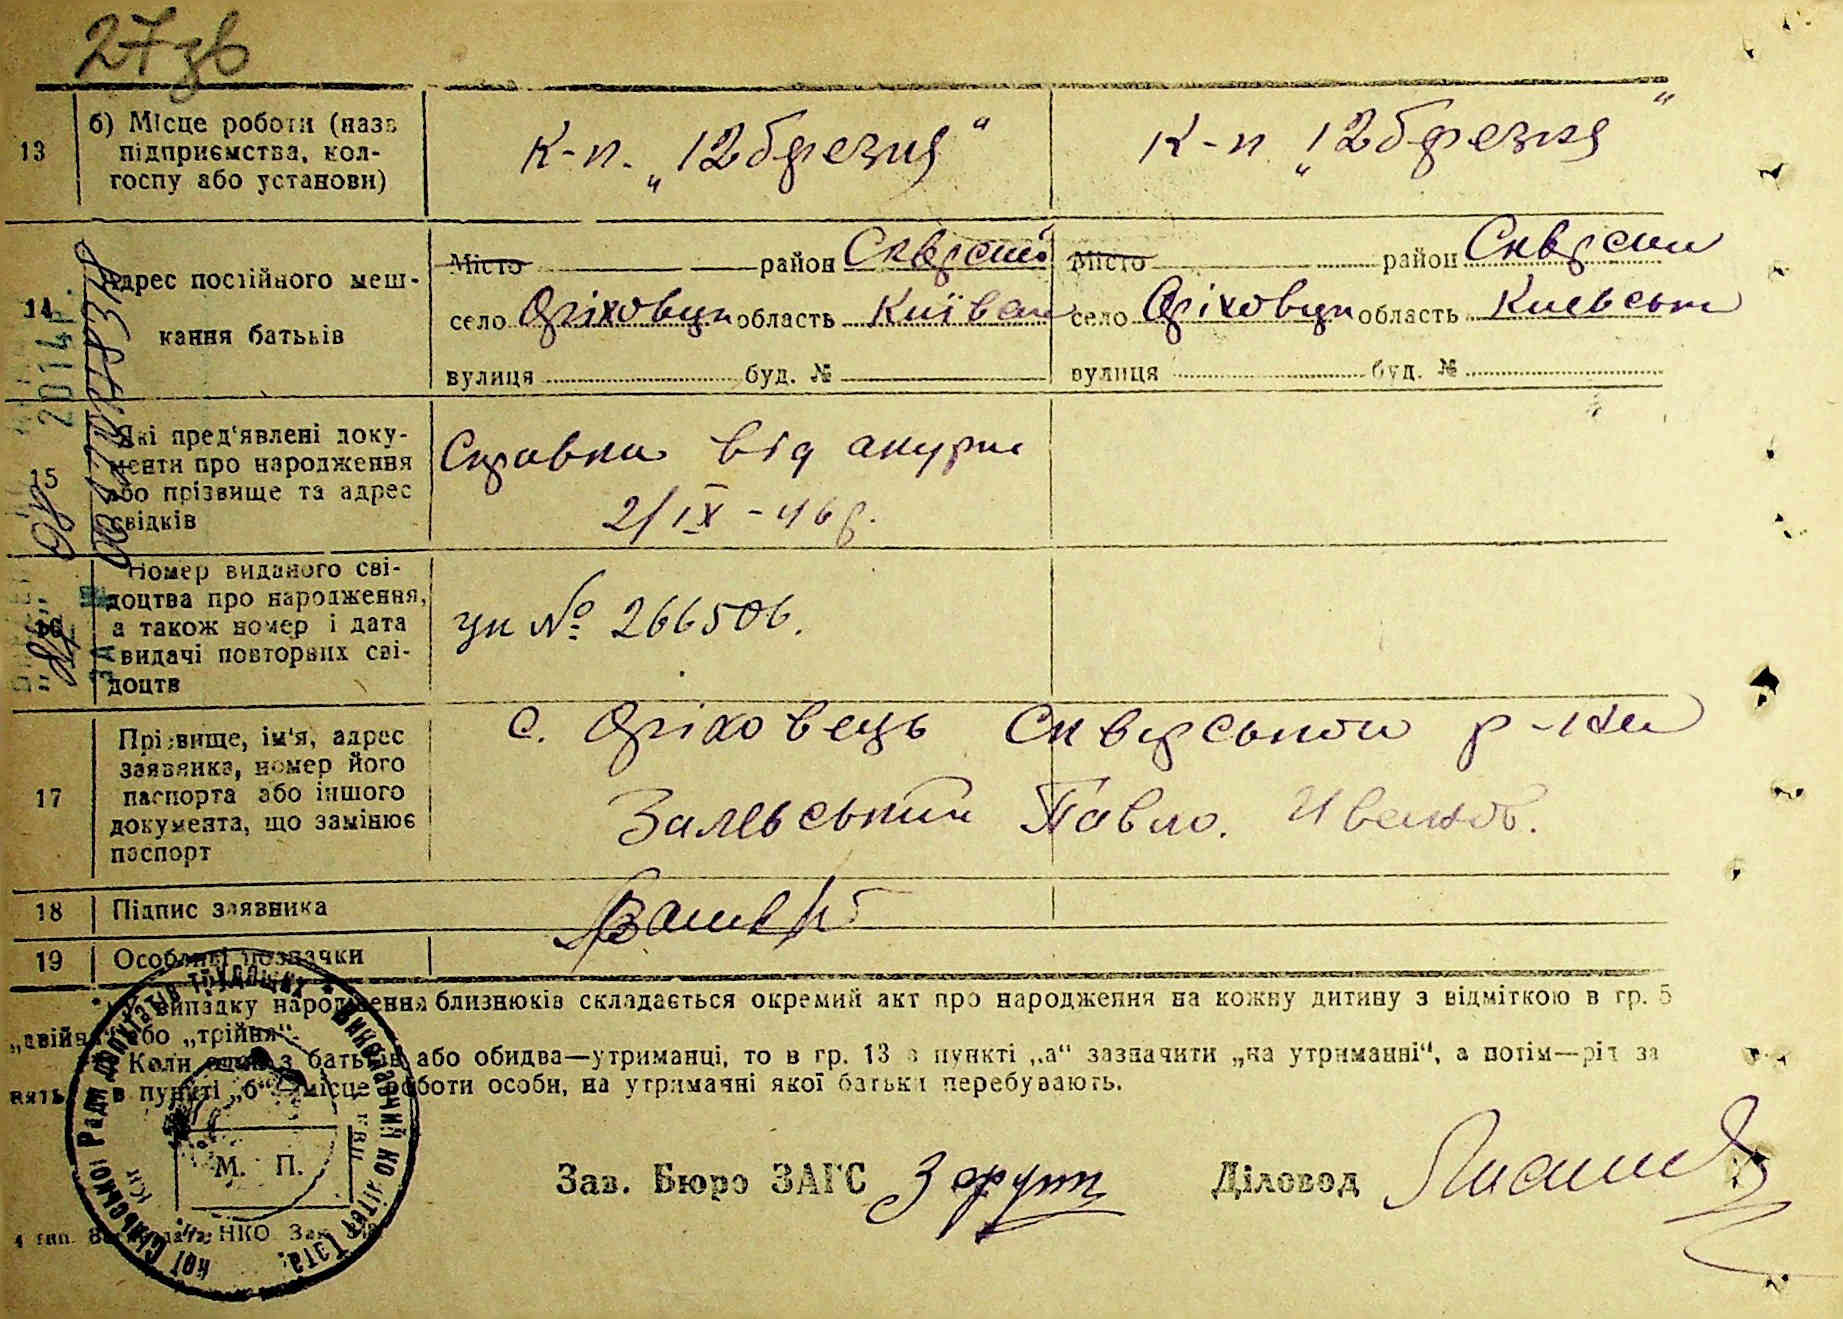 27зв
13 б) Місце роботи (назв підприємства, кол-
госпу або установи)
К-п. „12 березня“ К-п „12 березня“
14 Адрес постійного меш-
кання батьків
Місто район Сквирськ Місто район Сквирськи
село Оріховци область Київськ село Оріховци область Киевськи
вулиця буд. № вулиця буд. №
2014р.
15 Які пред'явлені доку-
менти про народження
або прізвище та адрес
свідків
Справка від акушн
2/IX - 46 р.
16 Номер виданого сві-
доцтва про народження,
а також номер і дата
видачі повторних сві-
доцтв
№ 266506.
17 Прізвище, ім'я, адрес
заявника, номер його
паспорта або іншого
документа, що замінює
паспорт
с. Оріховець Сквирського р-ну
Залевський Павло. Иванов.
18 Підпис заявника
19 Особливі позначки
* У випадку народження близнюків складається окремий акт про народження на кожну дитину з відміткою в гр. 5
„двійня“ або „трійня“.
** Коли один з батьків або обидва—утриманці, то в гр. 13 в пункті „а“ зазначити „на утриманні“, а потім—рід за
нять, а в пункті „б“—місце роботи особи, на утриманні якої батьки перебувають.
М. П.
Зав. Бюро ЗАГС Діловод
НКО Зак.
Виконавчий комітет
Сільської Ради депутатів трудящих